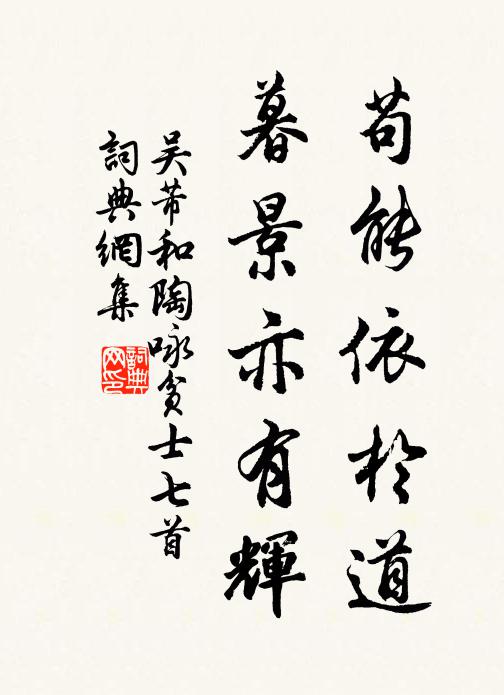 苟能依於道
暮景亦有輝
吴芾和陶咏貧士七首
詞典網集
詞典
网印